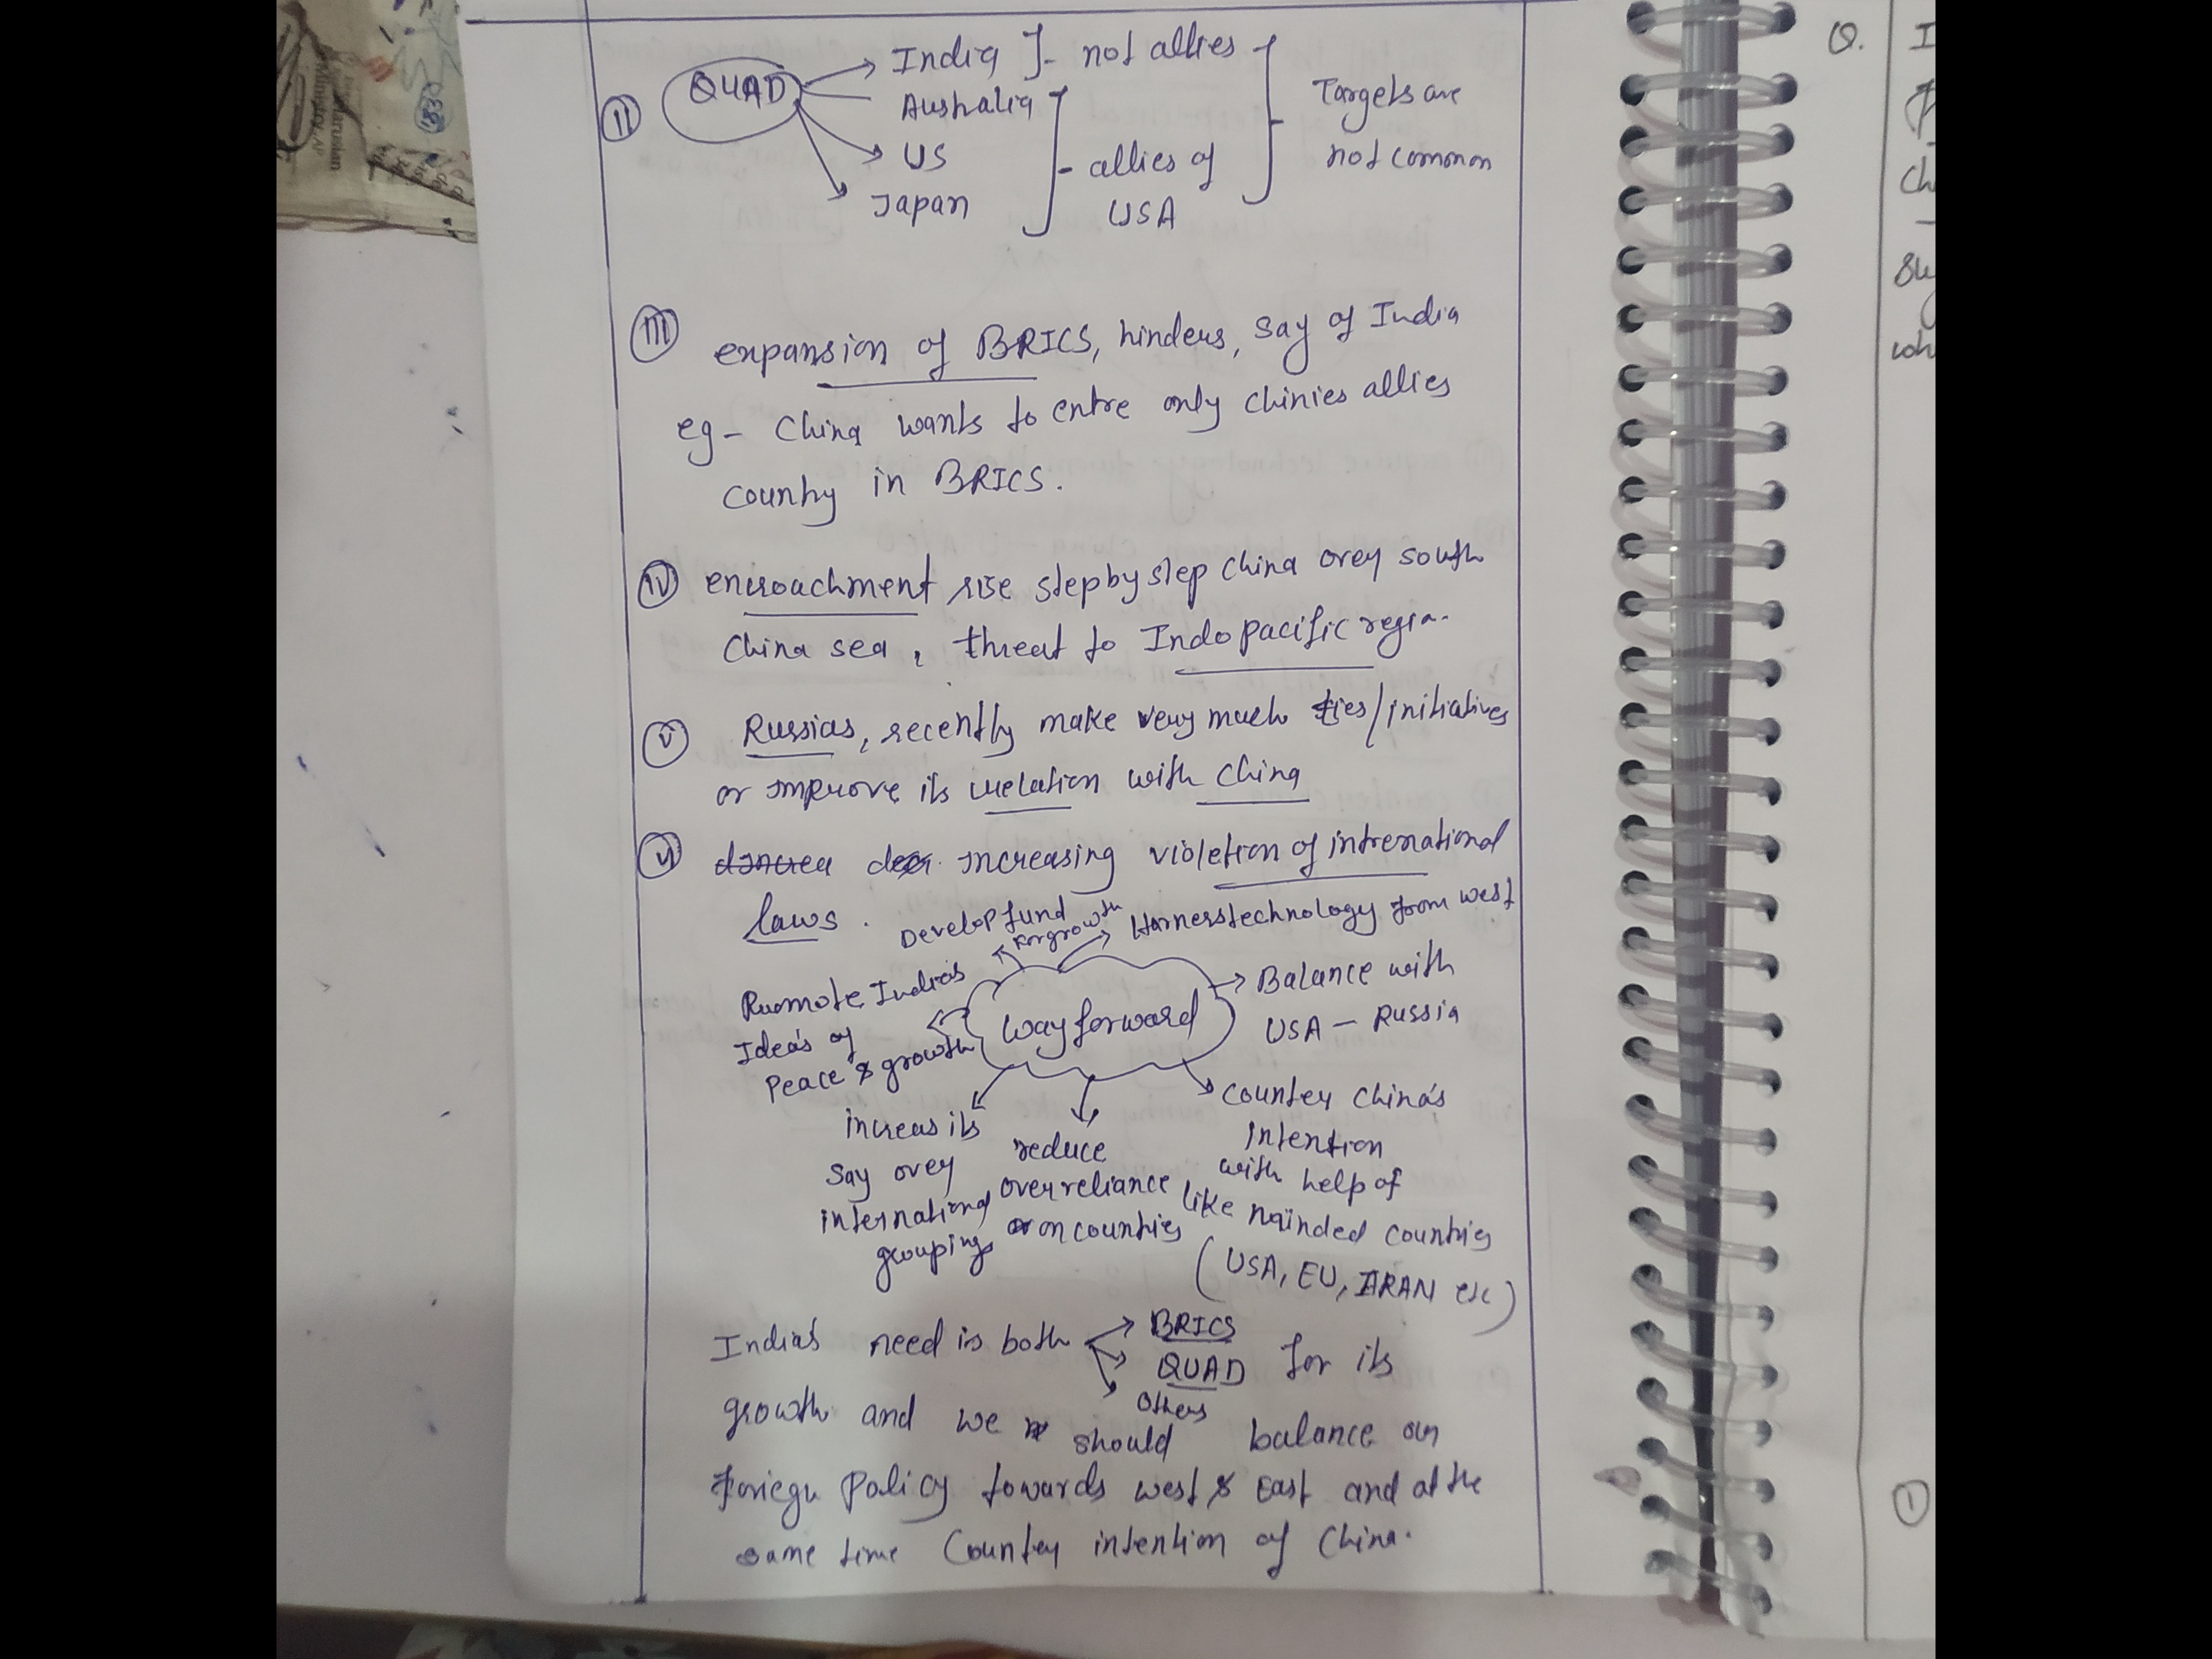 II QUAD India ]- not allies
Australia
US - allies of
Japan USA
Targets are
not common
III expansion of BRICS, hinders, say of India
eg - China wants to entre only chinies allies
country in BRICS.
IV encroachment rise step by step China over south
China sea, threat to Indo pacific regin.
V Russias, recently make very much ties/initiatives
or improve its relation with China
VI increasing violetion of intrernational
laws.
Develop fund
for growth
Harness technology from west
Promote India's
Ideas of
Peace & growth
way forward
Balance with
USA - Russia
increas its
say over
international
groupings
reduce
over reliance
on countries
counter China's
intention
with help of
like mainded countries
(USA, EU, etc)
India's need is both BRICS
QUAD for its
others
growth and we should balance our
Foriegn Policy towards west & East and at the
same time Counter intention of China.
Q.
1